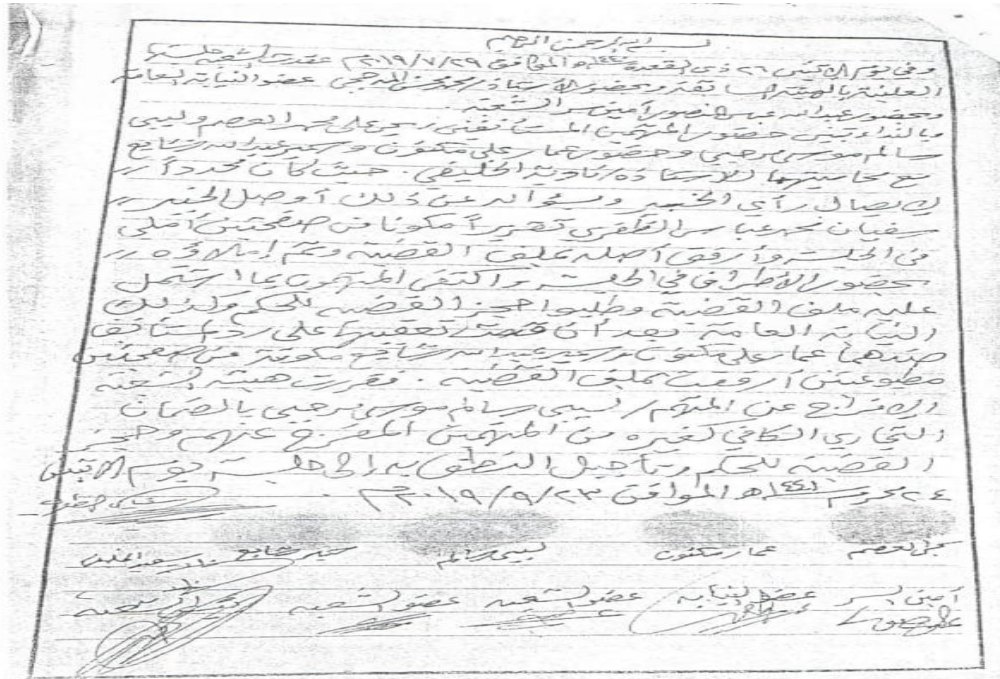 بسم الله الرحمن الرحيم
وفي يوم الاثنين ٢٦ ذي القعدة ١٤٤٠هـ الموافق ٢٩/٧/٢٠١٩م عقدت الشعبة جلستها
العلنية بالهيئة السابقة وبحضور الأستاذ/ محمد عضو النيابة العامة
وبحضور عبدالله أمين سر الشعبة.
بالنداء تبين حضور المتهمين المستأنفين جبل علي محمد العصم ولبيبي
سالم موسى مرحبي وحضور عمار علي مكنون وسمير عبدالله شايع
مع محاميتهما الأستاذة/ نادية الخليفي. حيث كان محدداً
لإيصال رأي الخبير وبسؤاله عن ذلك أوصل الخبير
سفيان محمد عباس تقريراً مكوناً من صفحتين
في الجلسة وأرفق أصله بملف القضية وتم إملاؤه
بحضور الأطراف في الجلسة واكتفى المتهمون بما اشتمل
عليه ملف القضية وطلبوا حجز القضية للحكم وكذلك
النيابة العامة بعد أن قدمت تعقيبها على رد المستأنف
ضدهما عمار علي مكنون وسمير عبدالله شايع مكونة من صفحتين
مطبوعتين أرفقت بملف القضية. فقررت هيئة الشعبة
الإفراج عن المتهم/ لبيبي سالم موسى مرحبي بالضمان
التجاري الكافي كغيره من المتهمين المفرج عنهم وحجز
القضية للحكم وتأجيل النطق به إلى جلسة يوم الاثنين
٢٤ محرم ١٤٤١هـ الموافق ٢٣/٩/٢٠١٩م.
جبل العصم عمار مكنون لبيبي سالم سمير شايع
أمين السر عضو النيابة عضو الشعبة عضو الشعبة رئيس الشعبة